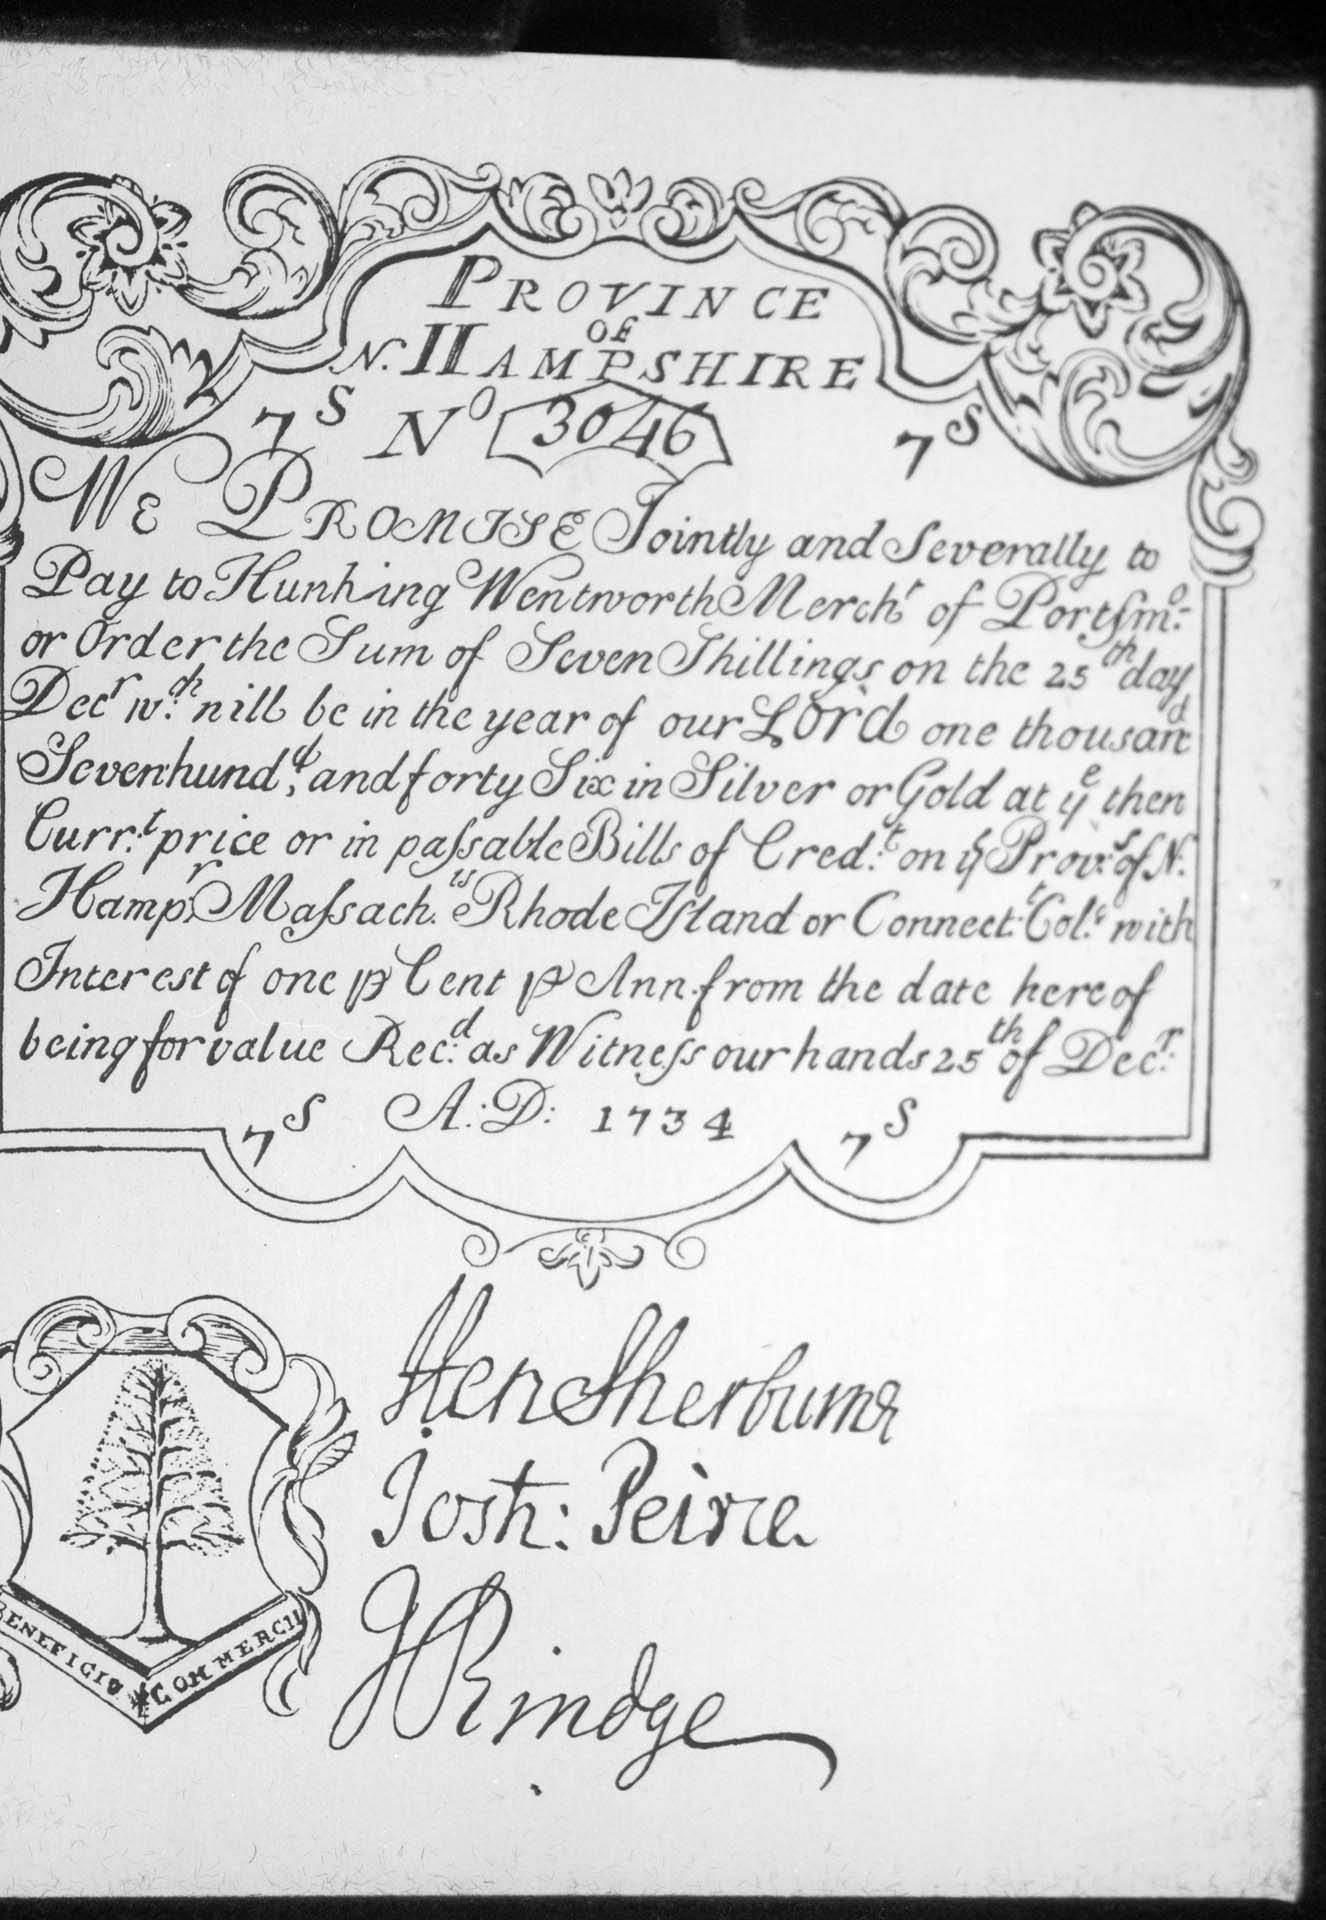 PROVINCE
OF
N. HAMPSHIRE
7S No 3046 7S
WE PROMISE Jointly and Severally to
Pay to Hunking Wentworth Merchr of Portſmo:
or Order the Sum of Seven Shillings on the 25th day
Decr wch: nill be in the year of our Lord one thousand
Sevenhundd, and forty Six in Silver or Gold at ye then
Curr:t price or in paſsable Bills of Cred:t on ye Prov:s of N.
Hampr: Maſsach.ts Rhode Island or Connect:t Col:s with
Interest of one p Cent p Ann. from the date hereof
being for value Rec:d as Witneſs our hands 25th of Decr:
7S A:D: 1734 7S
Hen Sherburne
Josh: Peirce
J Rindge
BENEFICIO COMMERCII